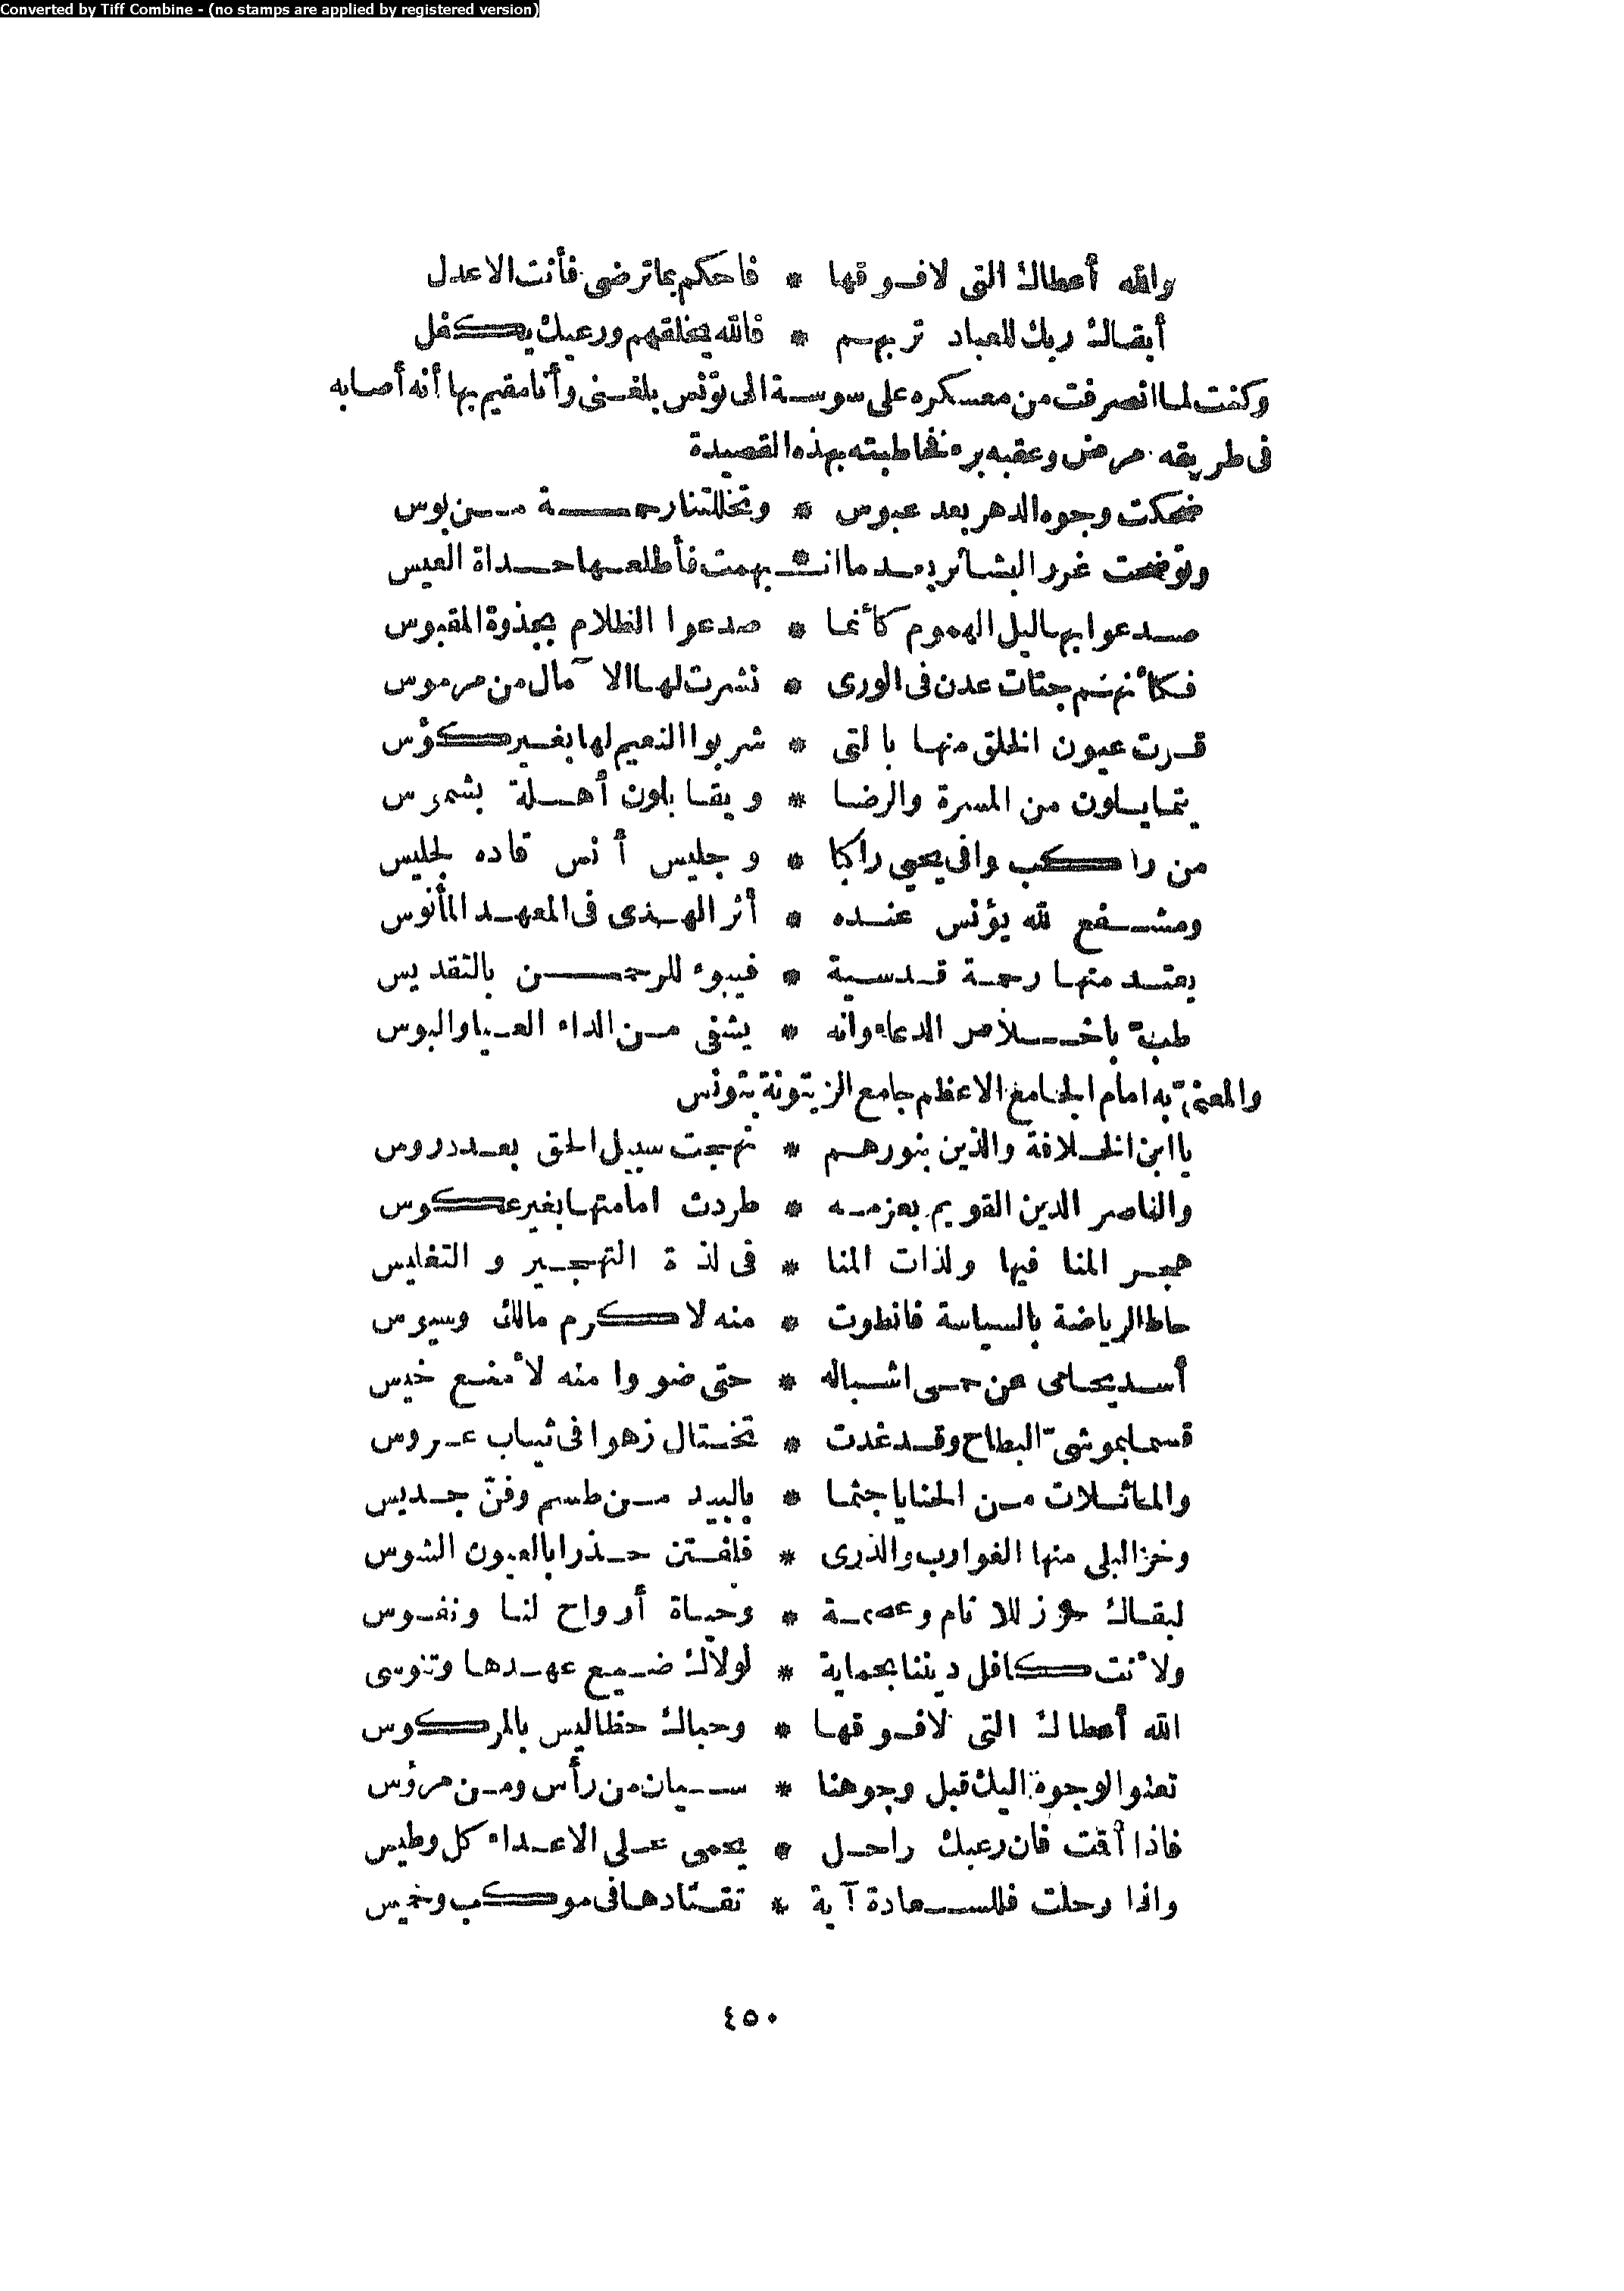 Converted by Tiff Combine - (no stamps are applied by registered version)
والله أعطاك التى لا فوقها * فاحكم بما ترضى فأنت الاعدل
أبقاك ربك للعباد تربهم * فالله يخلقهم ورعيك يكفل
وكنت لما انصرفت من معسكره على سوسة الى تونس بلغنى وأنا مقيم بها أنه أصابه
فى طريقه مرض وعقبه برء فخاطبته بهذه القصيدة
ضحكت وجوه الدهر بعد عبوس * وتخللتنا رحمة من بوس
وتوضحت غرر البشائر بعد ما انـ * ـبهمت فأطلعها حداة العيس
صدعوا بها ليل الهموم كأنما * صدعوا الظلام بجذوة المقبوس
فكأنهم جنات عدن فى الورى * نشرت لها الآمال من مرموس
قرت عيون الخلق منها بالتى * شربوا النعيم لها بغير كؤس
يتمايلون من المسرة والرضا * ويقابلون أهلة بشموس
من راكب وافى يحيى راكبا * وجليس أنس قاده لجليس
ومشفع لله يؤنس عنده * أثر الهدى فى المعهد المأنوس
يعتد منها رحمة قدسية * فيبوء للرحمن بالتقديس
طب باخلاص الدعاء وانه * يشفى من الداء العيا والبوس
والمعنى به امام الجامع الاعظم جامع الزيتونة بتونس
يا ابن الخلافة والذين بنورهم * نهجت سبيل الحق بعد دروس
والناصر الدين القويم بعزمه * طردت امامتها بغير عكوس
هجر المنا فيها ولذات المنا * فى لذة التهجير والتغليس
حاط الرياضة بالسياسة فانطوت * منه لاكرم مالك وسوس
أسد يحامى عن حمى اشباله * حتى ضووا منه لأمنع خيس
قسما بموشى البطاح وقد غدت * تختال زهوا فى ثياب عروس
والماثلات من الحنايا جثما * بالبيد من طسم وفن جديس
وخز البلى منها الغوارب والذرى * فلفتن حذرا بالعيون الشوس
لبقاك حرز للانام وعصمة * وحياة أرواح لنا ونفوس
ولأنت كافل ديننا بحماية * لولاك ضيع عهدها وتنوسى
الله أعطاك التى لا فوقها * وحباك حظا ليس بالمركوس
تعنو الوجوه اليك قبل وجوهنا * سيان من رأس ومن مرؤس
فاذا أقت فان رعبك راحل * يحمى على الاعداء كل وطيس
واذا رحلت فللسعادة آية * تقتادها فى موكب وخميس
٤٥٠